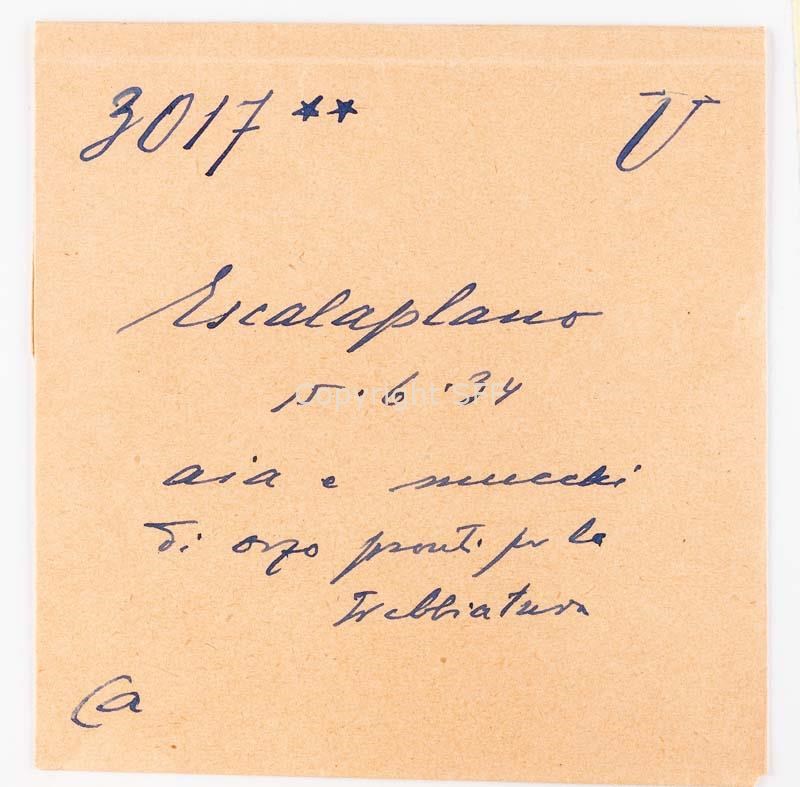 3017 ** U
Escalaplano
15.6.34
aia e mucchi
di orzo pronti per la
Trebbiatura
Ca